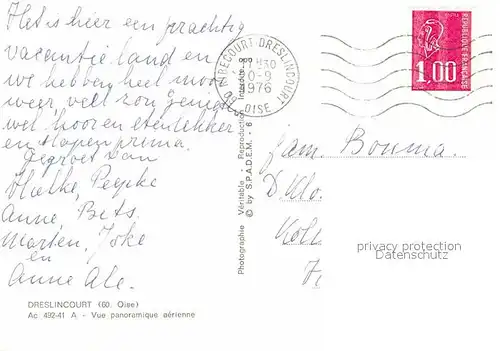 Het is hier een prachtig
vacantie land en
we hebben heel mooi
weer, veel zon genieten
wel, hooren eten lekker
en slapen prima.
Gegroet van
Hielke, Peepke
Anne, Bets.
Marten, Joke
en
Anne Ale.
DRESLINCOURT (60. Oise)
Ac 492-41 A - Vue panoramique aérienne
Photographie Véritable - Reproduction
© by S.P.A.D.E.M. 6
RIBECOURT-DRESLINCOURT
60
10-9
1976
OISE
REPUBLIQUE FRANÇAISE
1,00
Fam. Bouma.
D. Klo
Koll
privacy protection
Datenschutz